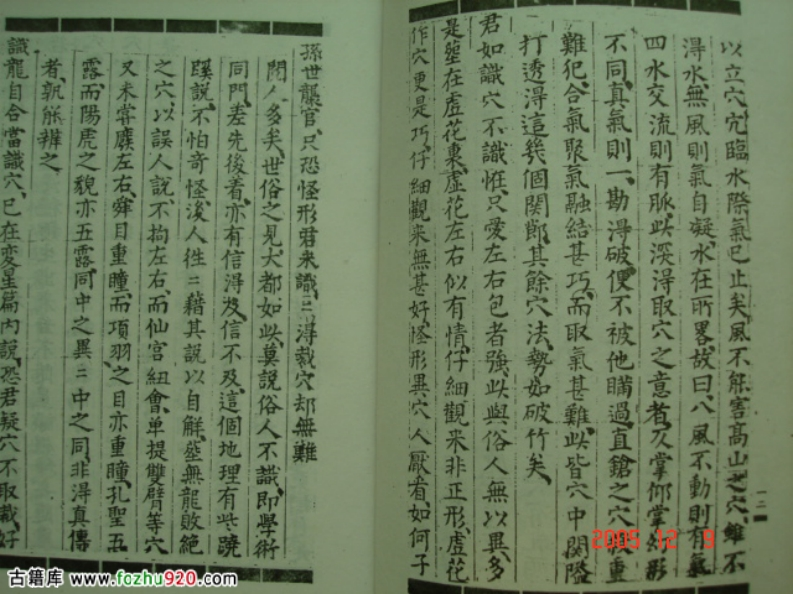 以立穴穴臨水際氣已止矣風不能害高山之穴雖不
得水無風則氣自凝水在所畧故曰八風不動則有氣
四水交流則有脈此深得取穴之意者仄掌仰掌幻形
不同真氣則一勘得破便不被他瞞過直鎗之穴
難犯合氣聚氣融結甚巧而取氣甚難此皆穴中関隘
打透得這幾個関節其餘穴法勢如破竹矣
君如識穴不識恠只愛左右包者強此與俗人無以異多
是塟在虛花裏虛花左右似有情仔細觀来非正形虛花
作穴更是巧仔細觀来無甚好怪形異穴人厭看如何子
孫世襲官只恐怪形君未識二得裁穴却無難
閱人多矣世俗之見大都如此莫說俗人不識即學術
同門差先後着亦有信得及信不及這個地理有此蹺
蹊說不怕奇怪後人徃二藉其說以自解塟無龍敗絕
之穴以誤人說不拘左右而仙宮紐會單提雙臂等穴
又未嘗廢左右舜目重瞳而項羽之目亦重瞳孔聖五
露而陽虎之貌亦五露同中之異二中之同非得真傳
者孰能辨之
識龍自合當識穴已在変星篇內說恐君疑穴不取裁好
十二
2005 12 9
古籍库 www.fozhu920.com